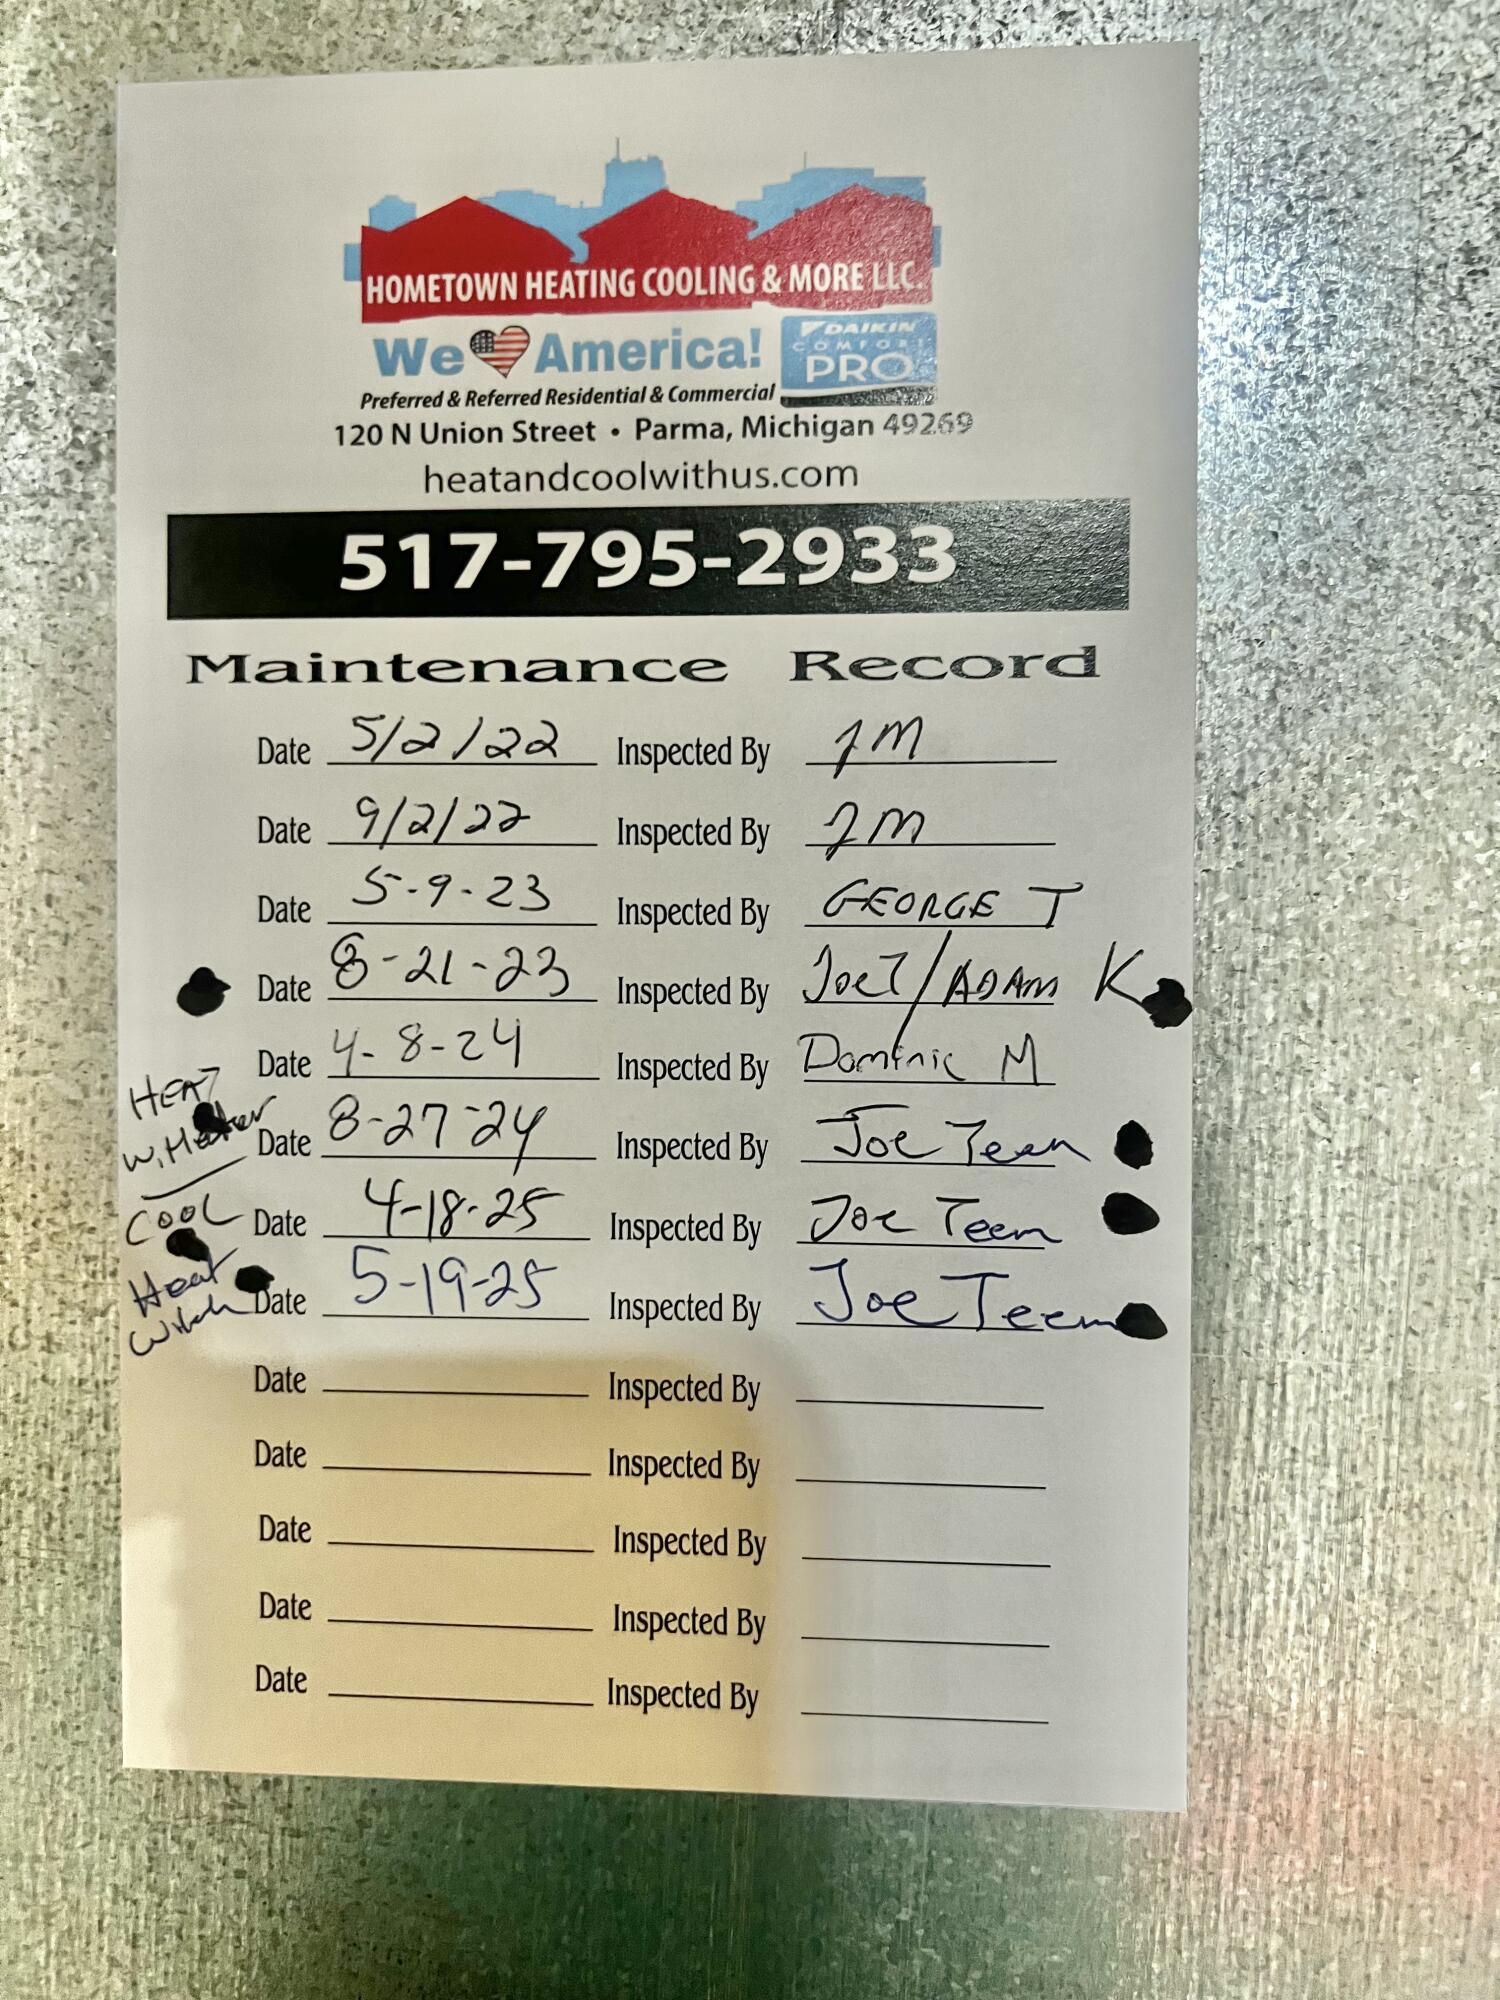 HOMETOWN HEATING COOLING & MORE LLC.
We America!
DAIKIN
COMFORT
PRO
Preferred & Referred Residential & Commercial
120 N Union Street • Parma, Michigan 49269
heatandcoolwithus.com
517-795-2933
Maintenance Record
Date 5/2/22 Inspected By JM
Date 9/2/22 Inspected By JM
Date 5-9-23 Inspected By GEORGE T
Date 8-21-23 Inspected By JoeT/ADAM K
Date 4-8-24 Inspected By Dominic M
HEAT
W. Heater Date 8-27-24 Inspected By Joe Teem
COOL Date 4-18-25 Inspected By Joe Teem
Heat
Date 5-19-25 Inspected By Joe Teem
Date Inspected By
Date Inspected By
Date Inspected By
Date Inspected By
Date Inspected By